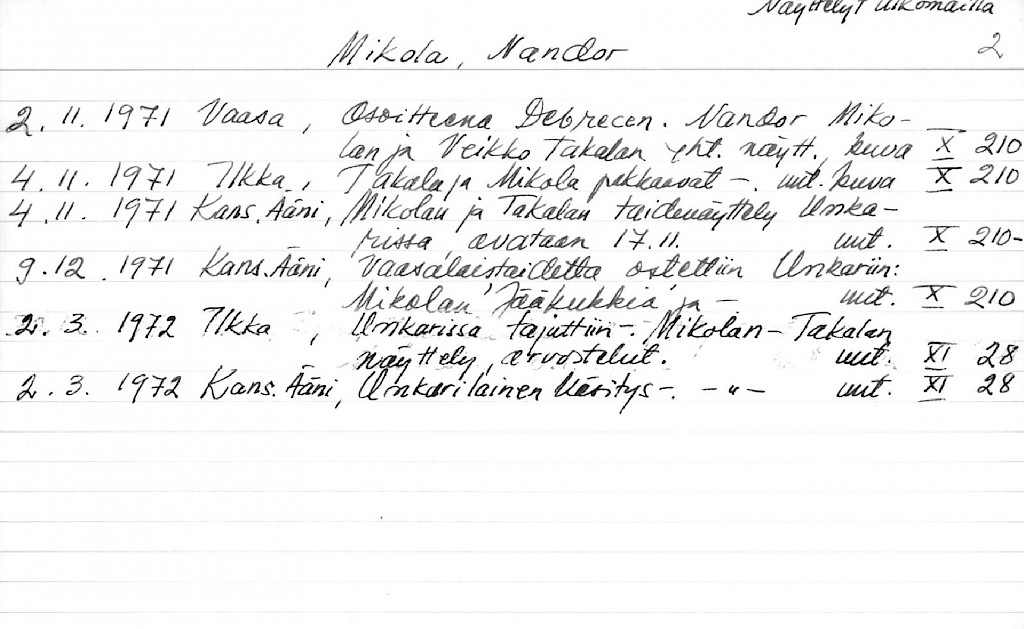 Näyttelyt ulkomailla
Mikola, Nandor 2
2. 11. 1971 Vaasa, Osoitteena Debrecen. Nandor Miko-
lan ja Veikko Takalan yht. näytt., kuva X 210
4. 11. 1971 Ilkka, Takala ja Mikola pakkaavat -. uut. kuva X 210
4. 11. 1971 Kans. Ääni, Mikolan ja Takalan taidenäyttely Unka-
rissa avataan 17.11. uut. X 210-
9.12.1971 Kans. Ääni, Vaasalaistaidetta ostettiin Unkariin:
Mikolan Jääkukkia ja - uut. X 210
2. 3. 1972 Ilkka, Unkarissa tajuttiin -. Mikolan-Takalan
näyttely, arvostelut. uut. XI 28
2. 3. 1972 Kans. Ääni, Unkarilainen käsitys -. -"- uut. XI 28